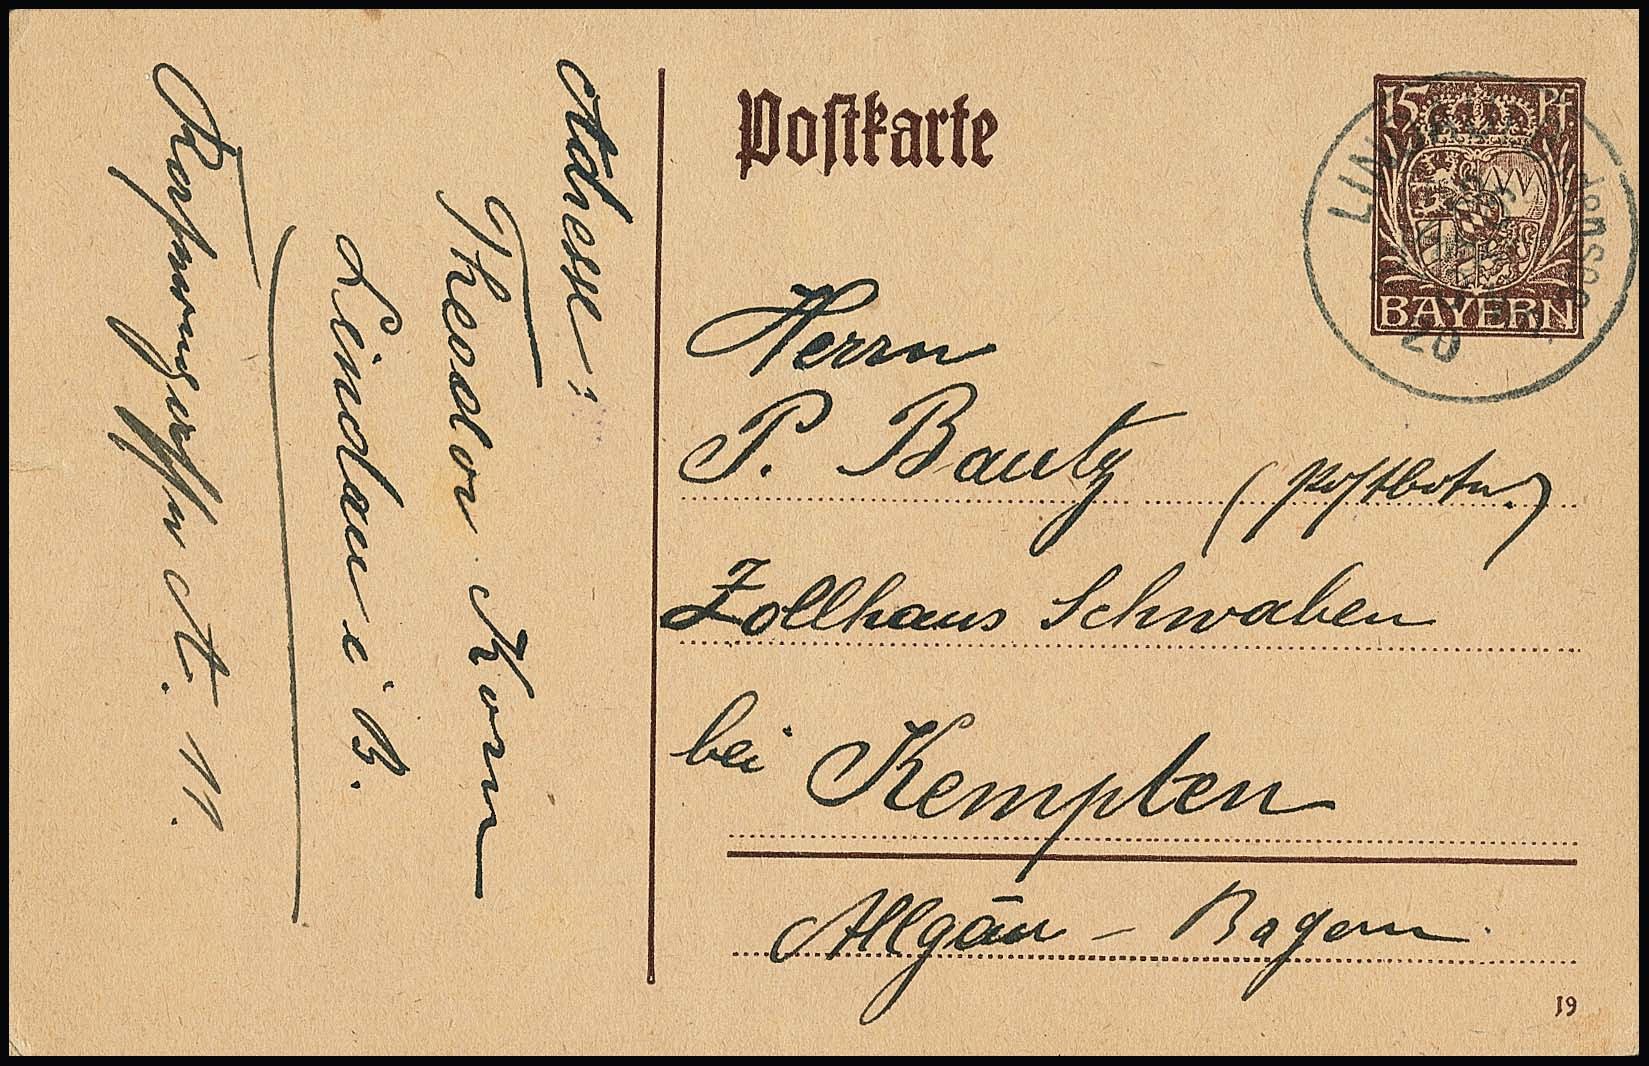 Adresse:
Theodor Korn
Lindau i B.
A. 11.
Postkarte
15 Pf
BAYERN
20
Herrn
P. Bautz
(Postbote.)
Zollhaus Schwaben
bei Kempten
Allgäu – Bayern.
19